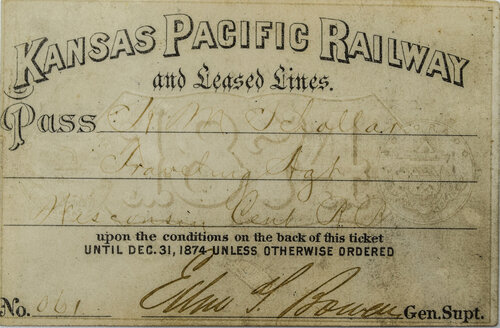 KANSAS PACIFIC RAILWAY
and Leased Lines.
Pass
Traveling Agt
Wisconsin Cent R.R.
upon the conditions on the back of this ticket
UNTIL DEC. 31, 1874 UNLESS OTHERWISE ORDERED
No. 061 Bowen Gen. Supt.